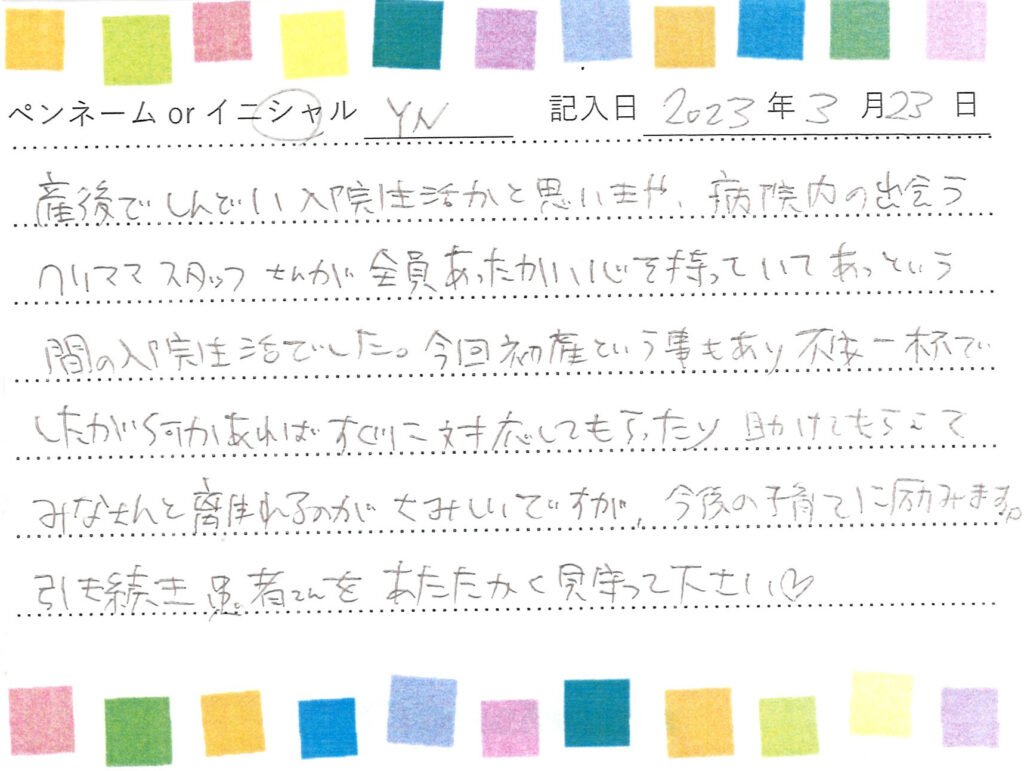 ペンネーム or イニシャル YN 記入日 2023 年 3 月 23 日
産後でしんどい入院生活かと思いきや、病院内の出会う
スタッフさんが全員あったかい心を持っていてあっという
間の入院生活でした。今回初産という事もあり不安一杯で
したが何かあればすぐに対応してもらったり助けてもらって
みなさんと離れるのがさみしいですが、今後の子育てに励みます。
引き続き患者さんをあたたかく見守って下さい♡